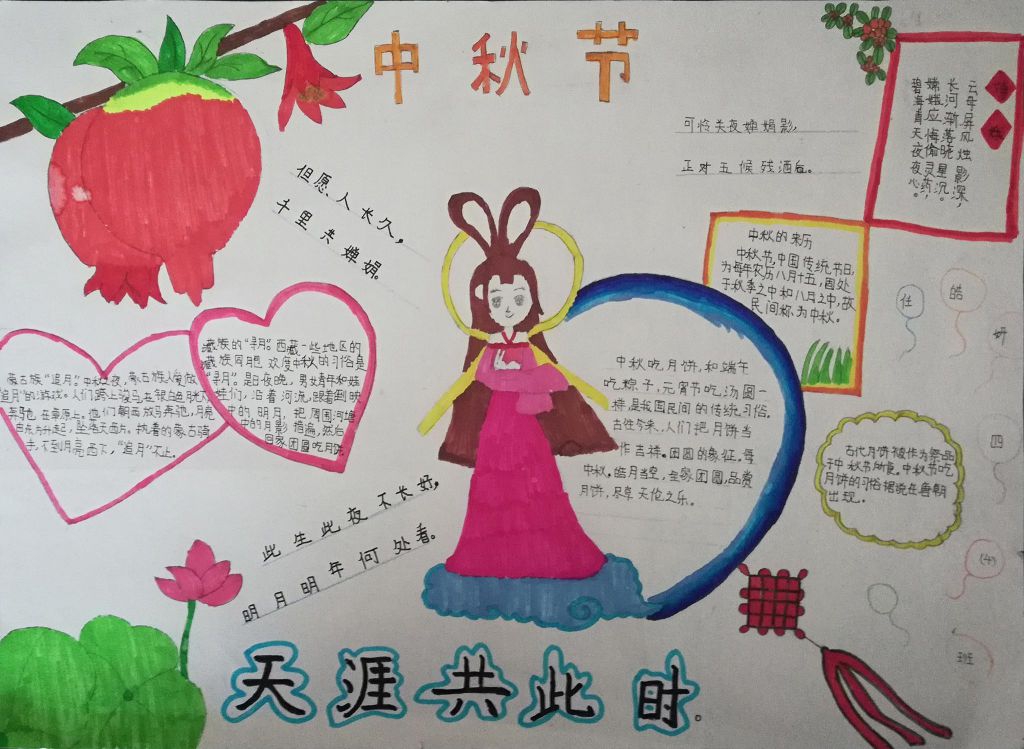 中秋节
但愿人长久，
千里共婵娟。
可怜关夜婵娟影，
正对五候残酒后。
嫦娥
云母屏风烛影深，
长河渐落晓星沉。
嫦娥应悔偷灵药，
碧海青天夜夜心。
中秋的来历
中秋节，中国传统节日，
为每年农历八月十五，因处
于秋季之中和八月之中，故
民间称为中秋。
藏族的“寻月”。西藏一些地区的
藏族同胞欢度中秋的习俗是
“寻月”。是日夜晚，男女青年和娃
娃们，沿着河流，跟着倒映
中的明月，把周围河塘
中的月影捎遍，然后
回家团圆吃月饼
蒙古族“追月”。中秋之夜，蒙古族人爱做
“追月”的游戏。人们跨上骏马，在银白色月光下
奔驰在草原上。他们朝西放马奔驰，月亮
由东方升起，坠落天西方。执着的蒙古骑
手，不到月亮西下，“追月”不止。
中秋吃月饼，和端午
吃粽子，元宵节吃汤圆一
样，是我国民间的传统习俗。
古往今来，人们把月饼当
作吉祥、团圆的象征。每
中秋，皓月当空，全家团圆，品赏
月饼，尽享天伦之乐。
古代月饼被作为祭品
于中秋节所食。中秋节吃
月饼的习俗据说在唐朝
出现。
任
皓
妍
四
(4)
班
此生此夜不长好，
明月明年何处看。
天涯共此时。